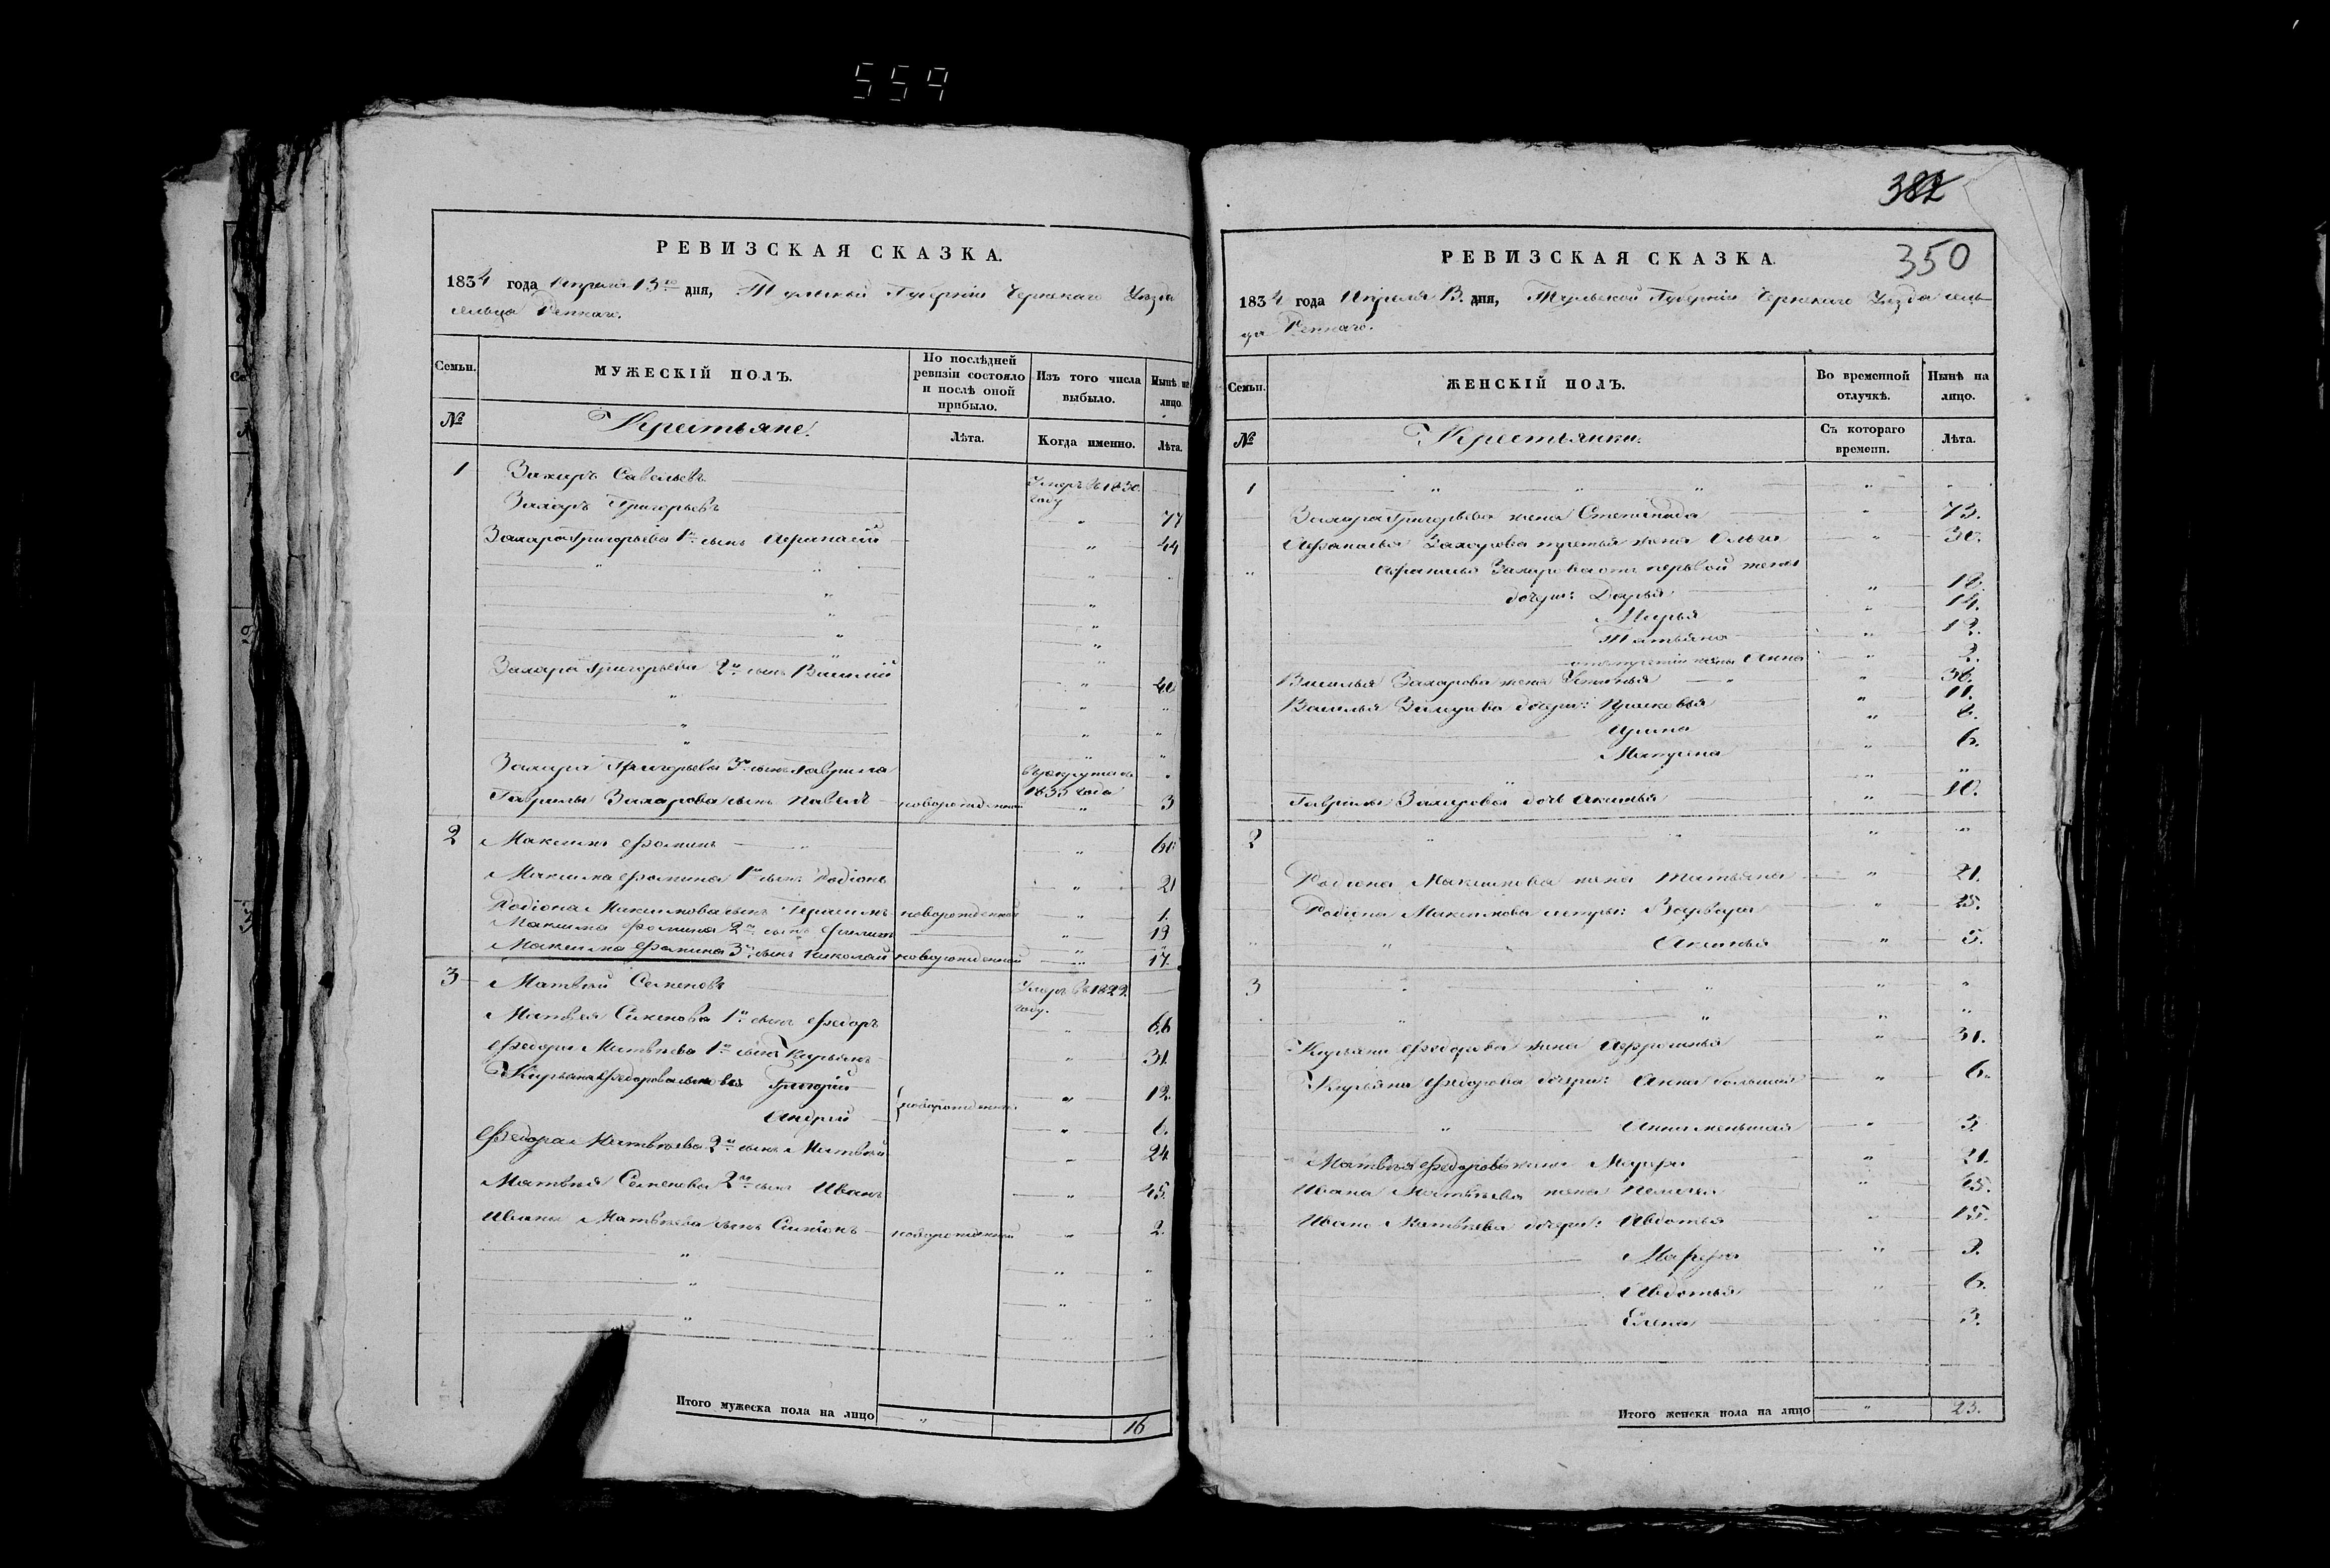 559
РЕВИЗСКАЯ СКАЗКА.
1834 года Апреля 13го дня, Тульской Губернии Чернскаго Уезда
сельца Репнаго.
Семьи. МУЖЕСКІЙ ПОЛЪ. По послѣдней ревизіи состояло и послѣ оной прибыло. Изъ того числа выбыло. Нынѣ на лицо.
№ Крестьяне. Лѣта. Когда именно. Лѣта.
1 Захаръ Савельевъ Умеръ въ 1830 году
Захаръ Григорьевъ " 77
Захара Григорьева 1й сынъ Афанасій " 44
Захара Григорьева 2й сынъ Василій " 40
Захара Григорьева 3й сынъ Гаврила в рекрутах 1833 года
Гаврилы Захарова сынъ Павелъ новорожденной " 3
2 Максимъ Фоминъ " 60
Максима Фомина 1й сынъ Родіонъ " 21
Родіона Максимова сынъ Герасимъ новорожденной " 1.
Максима Фомина 2й сынъ Филипъ " 19
Максима Фомина 3й сынъ Николай новорожденной " 17.
3 Матвей Семеновъ Умеръ въ 1829. году.
Матвея Семенова 1й сынъ Федоръ " 66
Федора Матвѣева 1й сынъ Кирьянъ " 31.
Кирьяна Федорова сыновья Григорій новорожденные " 12.
Андрей " 6.
Федора Матвѣева 2й сынъ Матвей " 24
Матвѣя Семенова 2й сынъ Иванъ " 45.
Ивана Матвѣева сынъ Симіонъ новорожденной " 2.
Итого мужеска пола на лицо " 16
382
350
РЕВИЗСКАЯ СКАЗКА.
1834 года Апреля 13. дня, Тульской Губерніи Чернскаго Уезда сель-
ца Репнаго.
Семьи. ЖЕНСКІЙ ПОЛЪ. Во временной отлучкѣ. Нынѣ на лицо.
№ Крестьянки. Съ котораго времени. Лѣта.
1 " " " "
Захара Григорьева жена Степанида " 73.
Афанасья Захарова третья жена Ольга " 30.
Афанасья Захарова от первой жены
дочери: Дарья " 18.
Марья " 14.
Татьяна " 12.
от третій жены Анна " 2.
Василья Захарова жена Устинья " 36.
Василья Захарова дочери: Прасковья " 11.
Арина " 8.
Матрена " 6.
Гаврилы Захарова дочь Аксинья " 10.
2 " " " "
Родіона Максимова жена Татьяна " 21.
Родіона Максимова сестры: Варвара " 15.
" Аксинья " 5.
3 " " " "
Кирьяна Федорова жена Афросинья " 31.
Кирьяна Федорова дочери: Анна большая " 6.
" Анна меньшая " 3.
Матвѣя Федорова жена Марфа " 21.
Ивана Матвѣева жена Пелагея " 45.
Ивана Матвѣева дочери: Авдотья " 15.
Марфа " 9.
Авдотья " 6.
Елена 3.
Итого женска пола на лицо " 23.